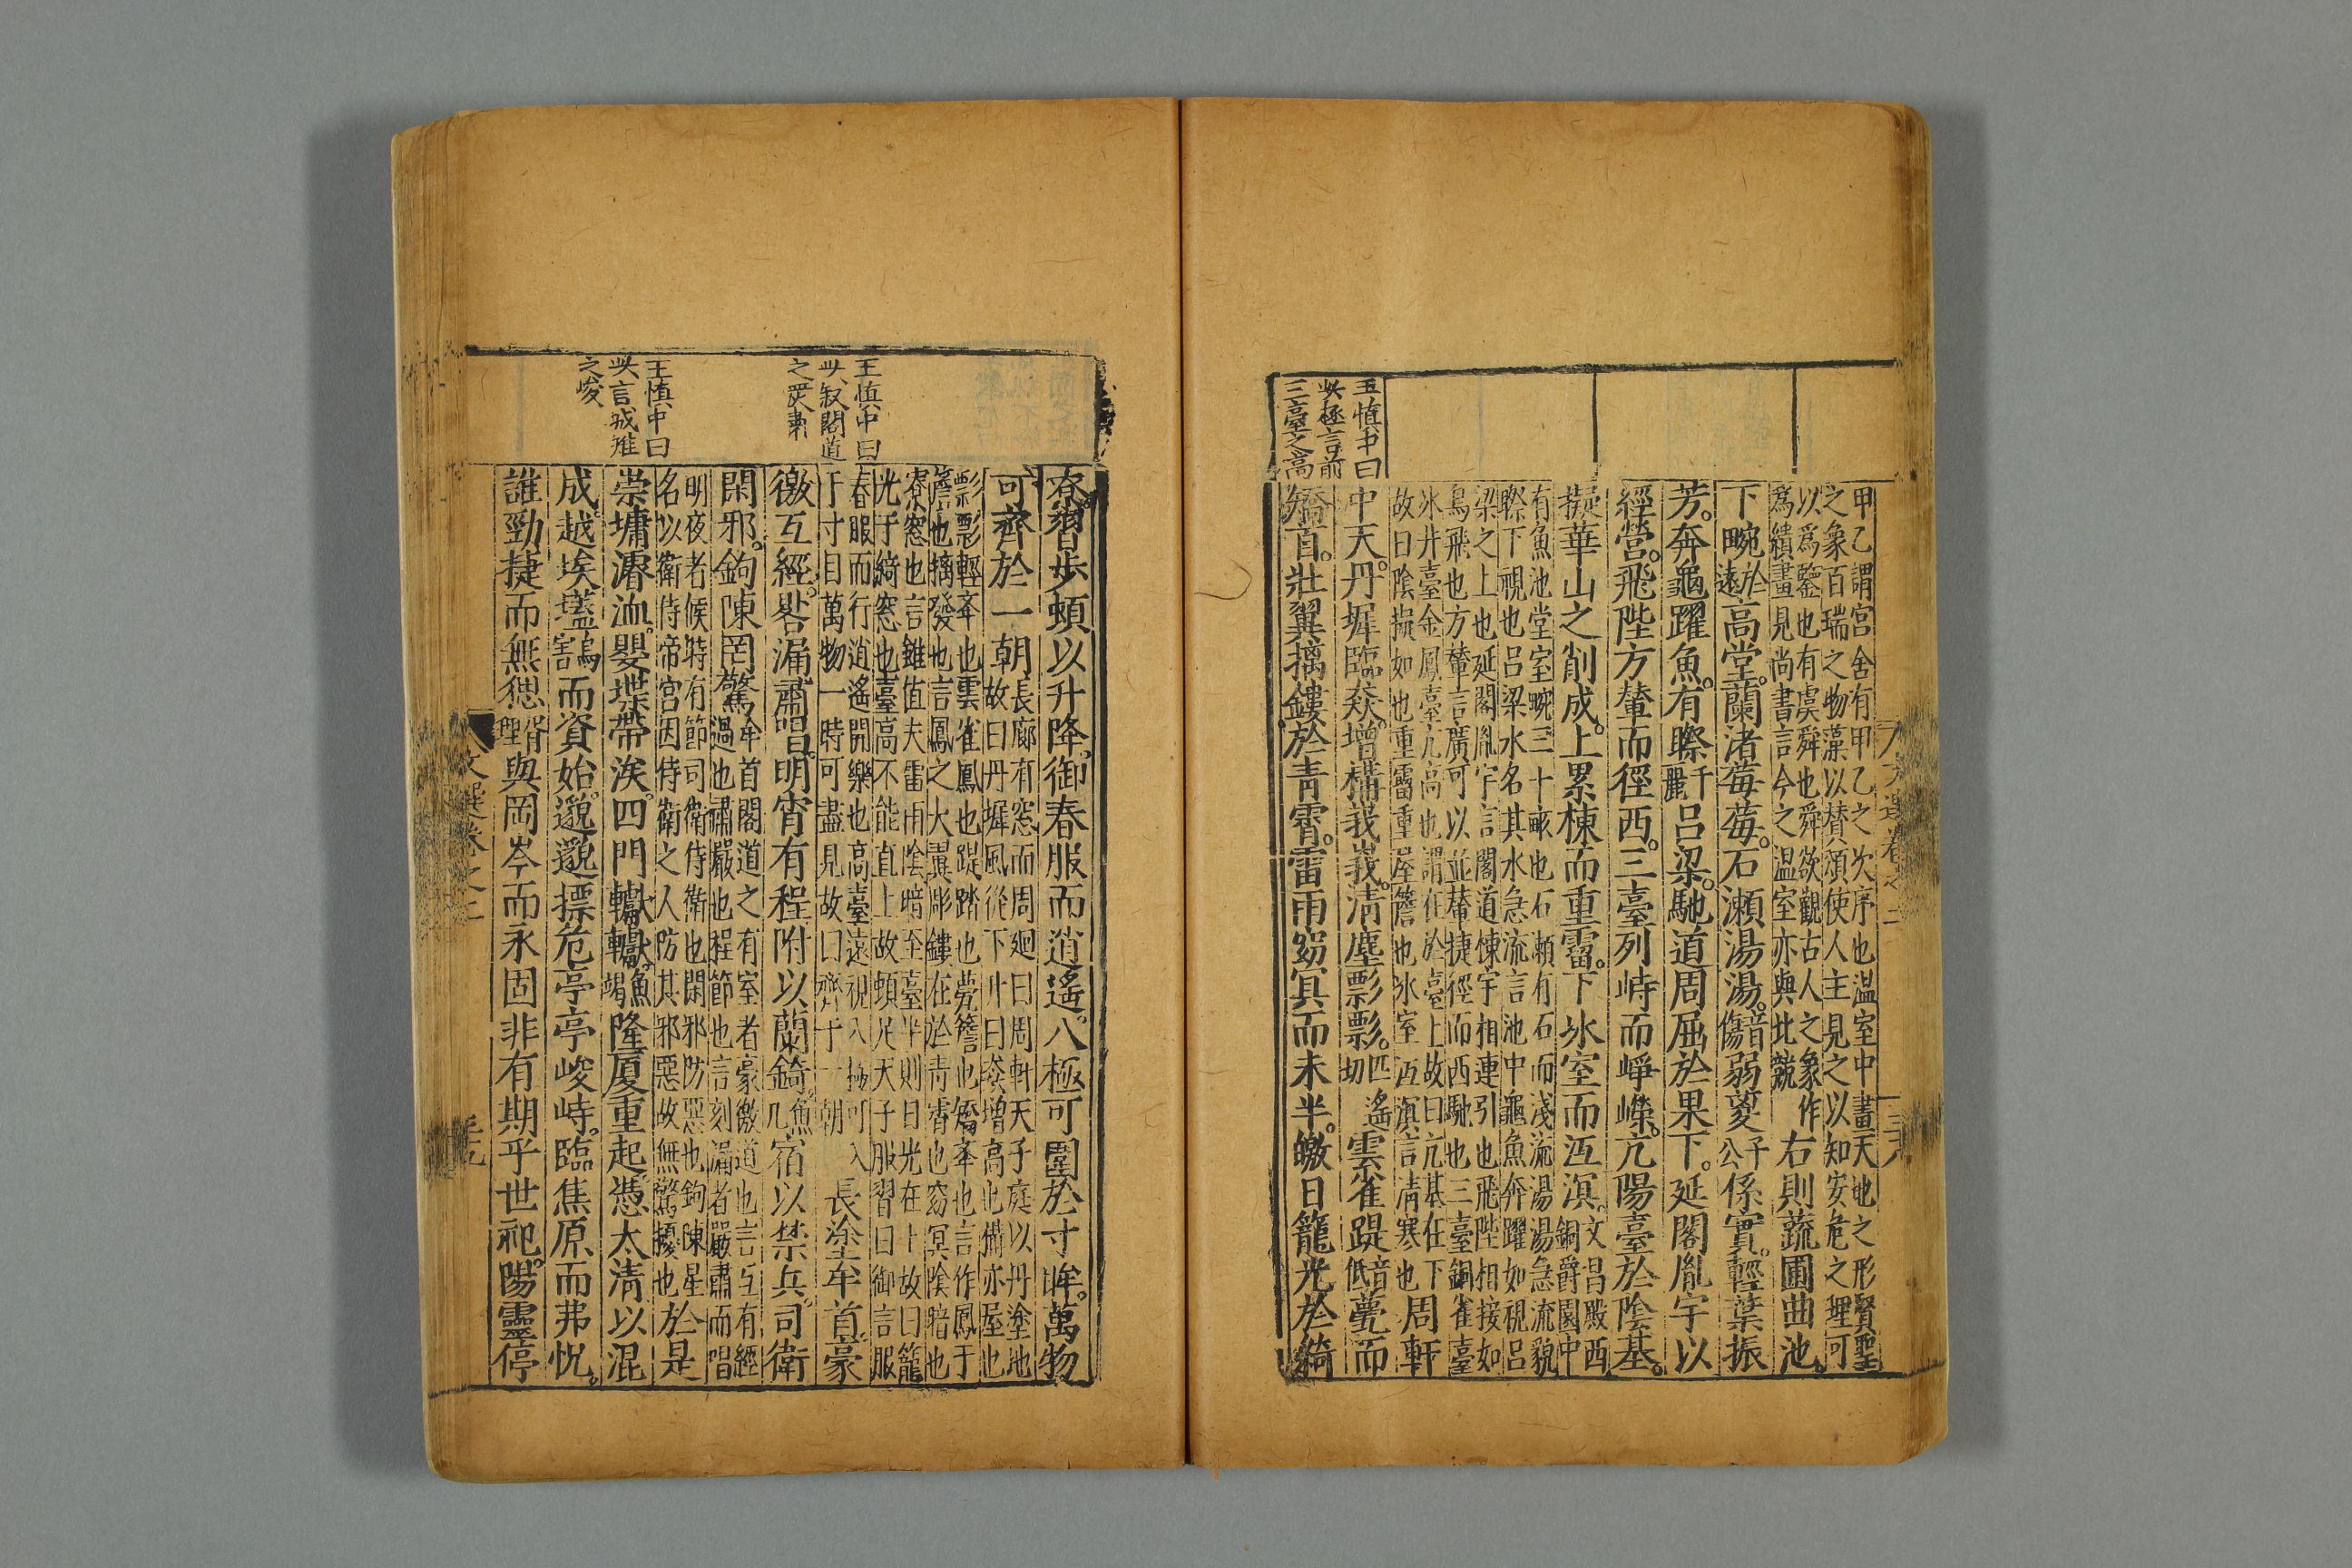 王慎中曰
此極言前
三臺之高
甲乙謂宮舍有甲乙之次序也溫室中畫天地之形賢聖
之象百瑞之物藻以賛頌使人主見之以知安危之理可
以爲鑒也有虞舜也舜欲觀古人之象作
爲繢畫見尚書言今之溫室亦與此競
右則蔬圃曲池
下畹於遠高堂蘭渚莓莓石瀬湯湯音傷弱葼子公係實輕葉振
芳奔龜躍魚有䁽千麗吕梁馳道周屈於果下延閣胤宇以
經營飛陛方輦而徑西三臺列峙而崢嶸亢陽臺於陰基
擬華山之削成上累棟而重霤下氷室而沍溟文昌殿西銅爵園中
有魚池堂室畹三十畞也石瀬有石而淺流湯湯急流貌
䁽下視也吕梁水名其水急流言池中龜魚奔躍如視吕
梁之上也延閣胤宇言閣道棟宇相連引也飛陛相接如
鳥飛也方輦言廣可以並輦捷徑而西馳也三臺銅雀臺
氷井臺金鳳臺亢高也謂在於臺上故曰亢基在下
故曰陰擬如也重霤重屋簷也氷室沍溟言凊寒也
周軒
中天丹墀臨猋增構峩峩凊塵彯彯匹切遙雲雀踶音低甍而
矯首壯翼摛鏤於青霄雷雨窈冥而未半皦日籠光於綺
文選卷之二
三十八
王慎中曰
此叙閣道
之䆳肅
王慎中曰
此言城雉
之峻
寮習步頓以升降御春服而逍遙八極可圍於寸眸萬物
可齊於一朝長廊有窓而周廻曰周軒天子庭以丹塗地
故曰丹墀風從下升曰猋增高也構亦屋也
彯彯輕舉也雲雀鳳也踶踏也甍簷也矯舉也言作鳳于
簷也摛發也言鳳之大翼彫鏤在於青霄也窈冥陰暗也
寮窓也言雖值夫雷雨陰暗至臺半則日光在上故曰籠
光于綺窓也臺高不能直上故頓足天子服習曰御言服
春服而行逍遙開樂也高臺遠視八極可入
于寸目萬物一時可盡見故曰齊于一朝
長塗牟首豪
徼互經晷漏肅唱明宵有程附以蘭錡魚几宿以禁兵司衛
閑邪鉤陳罔驚牟首閣道之有室者豪徼道也言互有經
過也肅嚴也程節也言刻漏者嚴肅而唱
明夜者候時有節司衛侍衛也閑邪防惡也鉤陳星
名以衛侍帝宮因侍衛之人防其邪惡故無驚擾也
於是
崇墉濬洫嬰堞帶涘四門轥轥魚竭隆厦重起憑太清以混
成越埃壒鷎而資始邈邈摽危亭亭峻峙臨焦原而弗怳
誰勁捷而無猤胥理與岡岑而永固非有期乎世祀陽靈停
文選卷之二
三十九